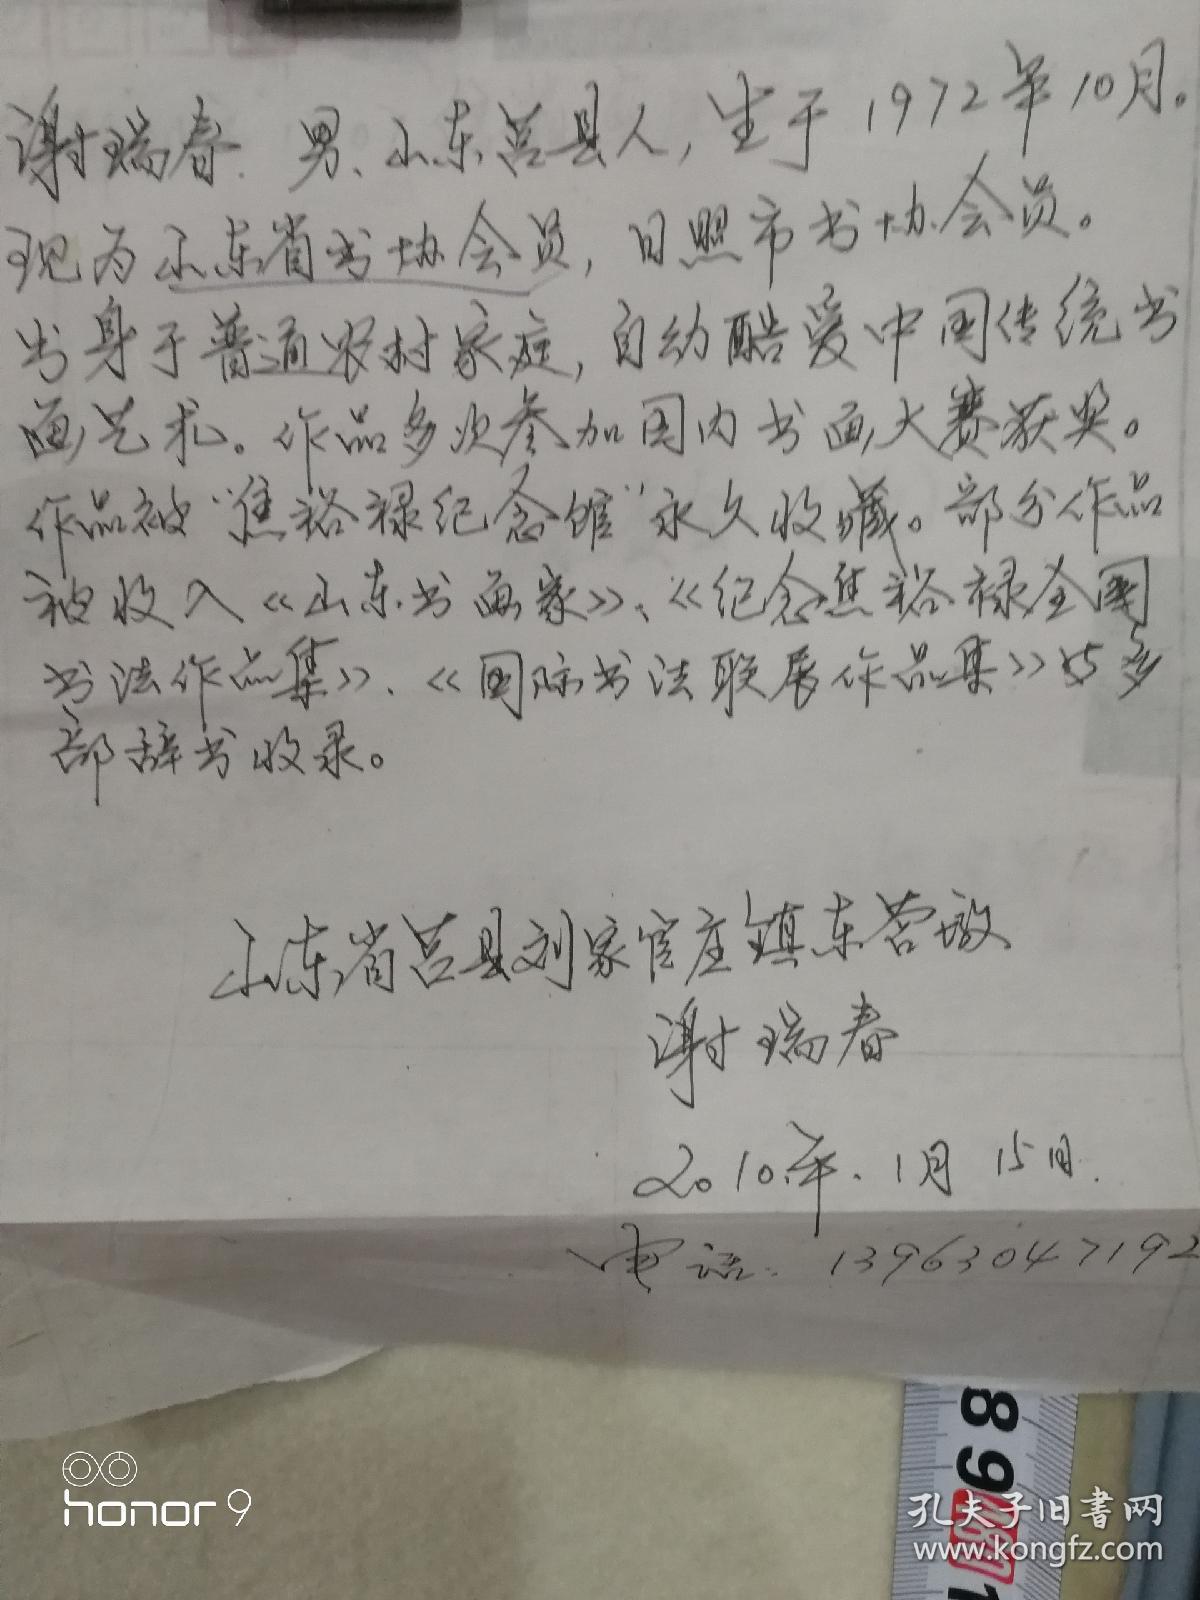 谢瑞春.男、山东莒县人,生于1972年10月。
现为山东省书协会员,日照市书协会员。
出身于普通农村家庭,自幼酷爱中国传统书
画艺术。作品多次参加国内书画大赛获奖。
作品被“焦裕禄纪念馆”永久收藏。部分作品
被收入《山东书画家》、《纪念焦裕禄全国
书法作品集》、《国际书法联展作品集》等多
部辞书收录。
山东省莒县刘家官庄镇东营墩
谢瑞春
2010年.1月15日.
电话.13963047192
honor 9
8 9
孔夫子旧书网
www.kongfz.com